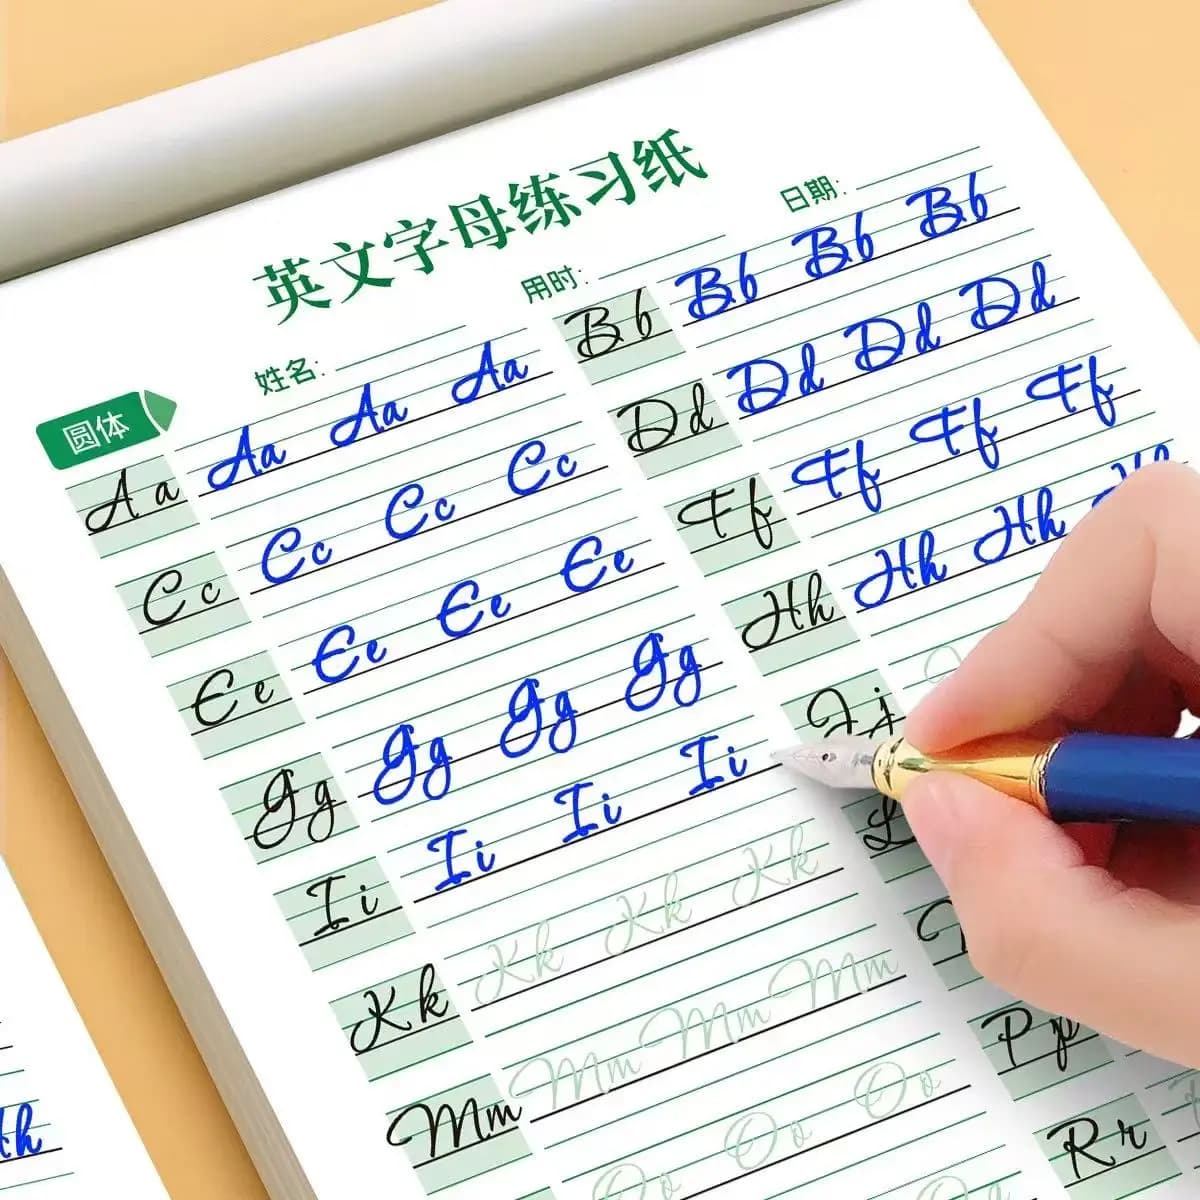 英文字母练习纸
姓名: 用时: 日期:
圆体
Aa Aa Aa Aa
Bb Bb Bb Bb
Cc Cc Cc Cc
Dd Dd Dd Dd
Ee Ee Ee Ee
Ff Ff Ff Ff
Gg Gg Gg Gg
Hh Hh Hh Hh
Ii Ii Ii Ii
Jj
Kk Kk Kk Kk
L
Mm Mm Mm Mm
Oo Oo Oo
Pp
Rr